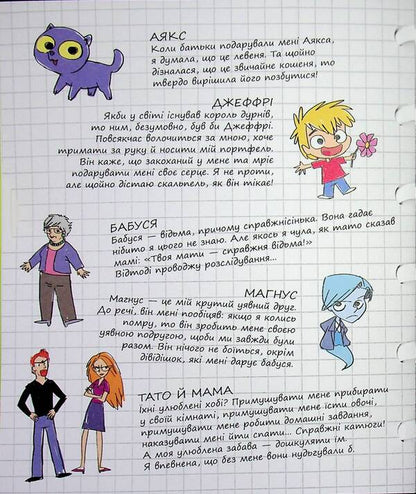 АЯКС
Коли батьки подарували мені Аякса,
я думала, що це левеня. Та щойно
дізналася, що це звичайне кошеня, то
твердо вирішила його позбутися!
ДЖЕФФРІ
Якби у світі існував король дурнів,
то ним, безумовно, був би Джеффрі.
Повсякчас волочиться за мною, хоче
тримати за руку й носити мій портфель.
Він каже, що закоханий у мене та мріє
подарувати мені своє серце. Я не проти,
але щойно дістаю скальпель, як він тікає!
БАБУСЯ
Бабуся — відьма, причому справжнісінька. Вона гадає
нібито я цього не знаю. Але якось я чула, як тато сказав
мамі: «Твоя мати — справжня відьма!»
Відтоді проводжу розслідування...
МАГНУС
Магнус — це мій крутий уявний друг.
До речі, він мені пообіцяв: якщо я колись
помру, то він зробить мене своєю
уявною подругою, щоби ми завжди були
разом. Він нічого не боїться, окрім
дівідішок, які мені дарує бабуся.
ТАТО Й МАМА
Їхні улюблені хобі? Примушувати мене прибирати
у своїй кімнаті, примушувати мене їсти овочі,
примушувати мене робити домашні завдання,
наказувати мені йти спати... Справжні катюги!
А моя улюблена забава — дошкуляти їм.
Я впевнена, що без мене вони нудьгували б.